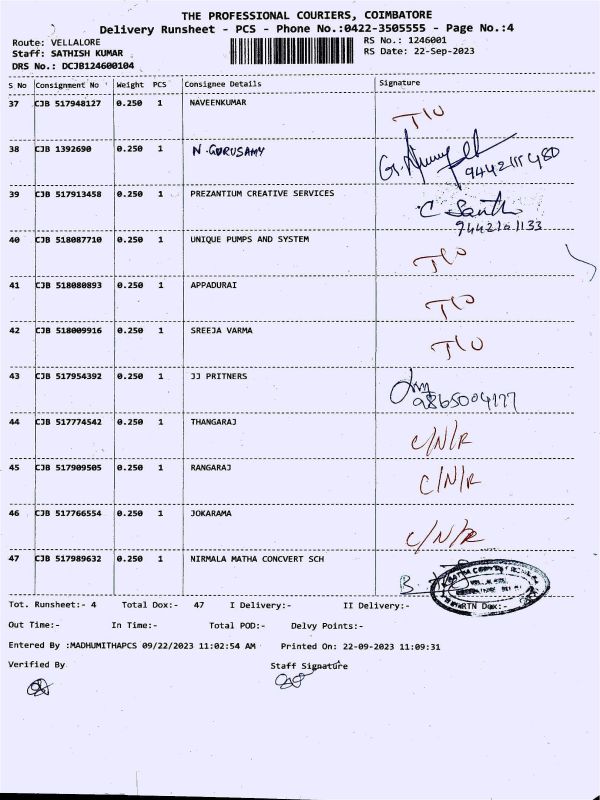 THE PROFESSIONAL COURIERS, COIMBATORE
Delivery Runsheet - PCS - Phone No.:0422-3505555 - Page No.:4
Route: VELLALORE
Staff: SATHISH KUMAR
DRS No.: DCJB124600104
RS No.: 1246001
RS Date: 22-Sep-2023
S No Consignment No Weight PCS Consignee Details Signature
37 CJB 517948127 0.250 1 NAVEENKUMAR T/O
38 CJB 1392690 0.250 1 N.GURUSAMY
39 CJB 517913458 0.250 1 PREZANTIUM CREATIVE SERVICES
40 CJB 518087710 0.250 1 UNIQUE PUMPS AND SYSTEM T/O
41 CJB 518080893 0.250 1 APPADURAI T/O
42 CJB 518009916 0.250 1 SREEJA VARMA T/O
43 CJB 517954392 0.250 1 JJ PRITNERS
44 CJB 517774542 0.250 1 THANGARAJ C/N/R
45 CJB 517909505 0.250 1 RANGARAJ C/N/R
46 CJB 517766554 0.250 1 JOKARAMA C/N/R
47 CJB 517989632 0.250 1 NIRMALA MATHA CONCVERT SCH B.
Tot. Runsheet:- 4 Total Dox:- 47 I Delivery:- II Delivery:- RTN Dox:-
Out Time:- In Time:- Total POD:- Delvy Points:-
Entered By :MADHUMITHAPCS 09/22/2023 11:02:54 AM Printed On: 22-09-2023 11:09:31
Verified By Staff Signature